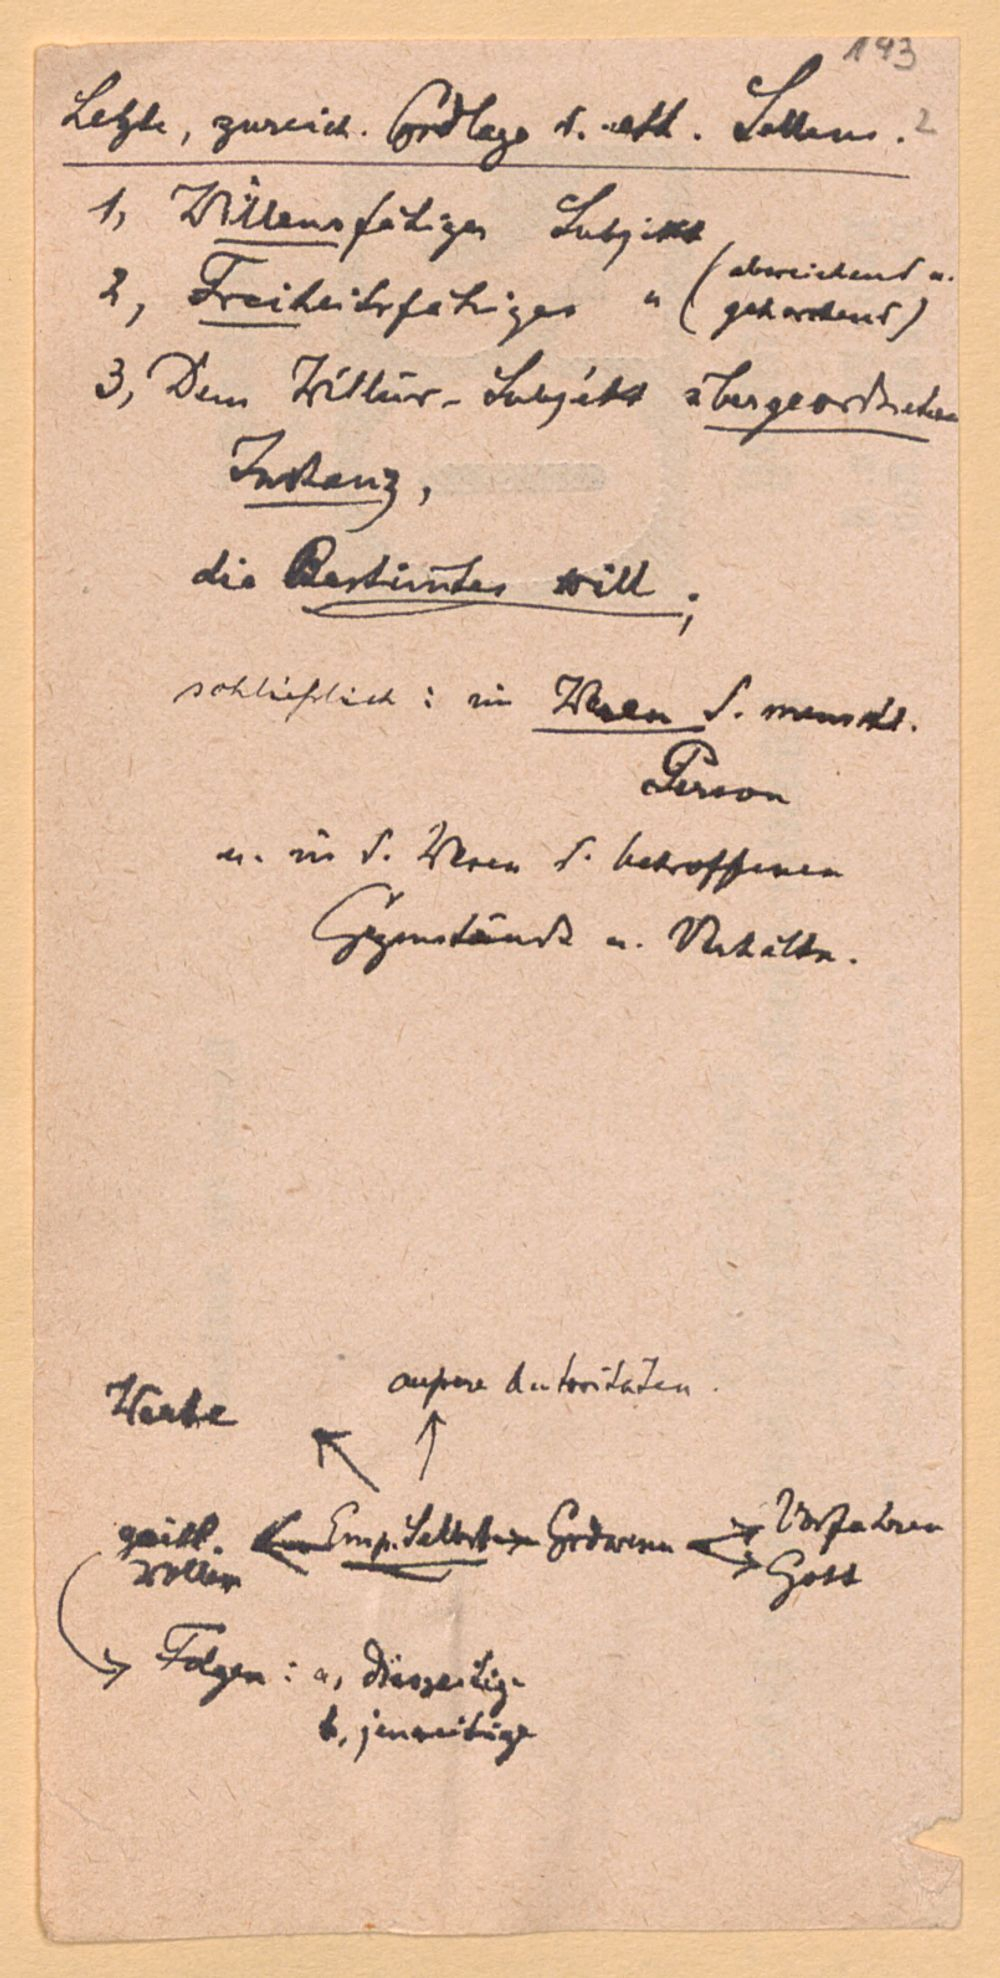 193
Letzte, zureich. Grdlage d. eth. Sollens. 2
1, Willensfähiges Subjekt
2, Freiheitsfähiges " (abweichend u.
gehorchend)
3, Dem Willkür-Subjekt übergeordneten
Instanz,
die Bestimtes will;
schließlich: im Wesen d. menschl.
Person
u. in d. Wesen d. betroffenen
Gegenstände u. Verhältn.
äußere Autoritäten.
Werte
geistl. Emp. Selbst Grdwesen Vorfahren
Wollen Gott
Folgen: a, diesseitige
b, jenseitige